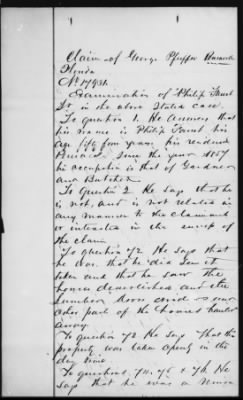 Claim of George Pfeiffer Pensacola
Florida
No. 17934
Examination of Philip Faust
Sr in the above stated case.
To Question 1. He answers that
his name is Philip Faust his
age fifty four years his residence
Pensacola since the year 1857
his occupation is that of Gardner
and Butcher
To Question 2 He says that he
is not, and is not related in
any manner to the claimant
or interested in the success of
the claim
To question 72 He says that
he was. that he did see it
taken and that he saw the
houses demolished and the
lumber doors and
other part of the houses hauled
away.
To question 73 He says That the
property was taken openly in the
day time
To questions 74. 75 & 76 He
says that he was a